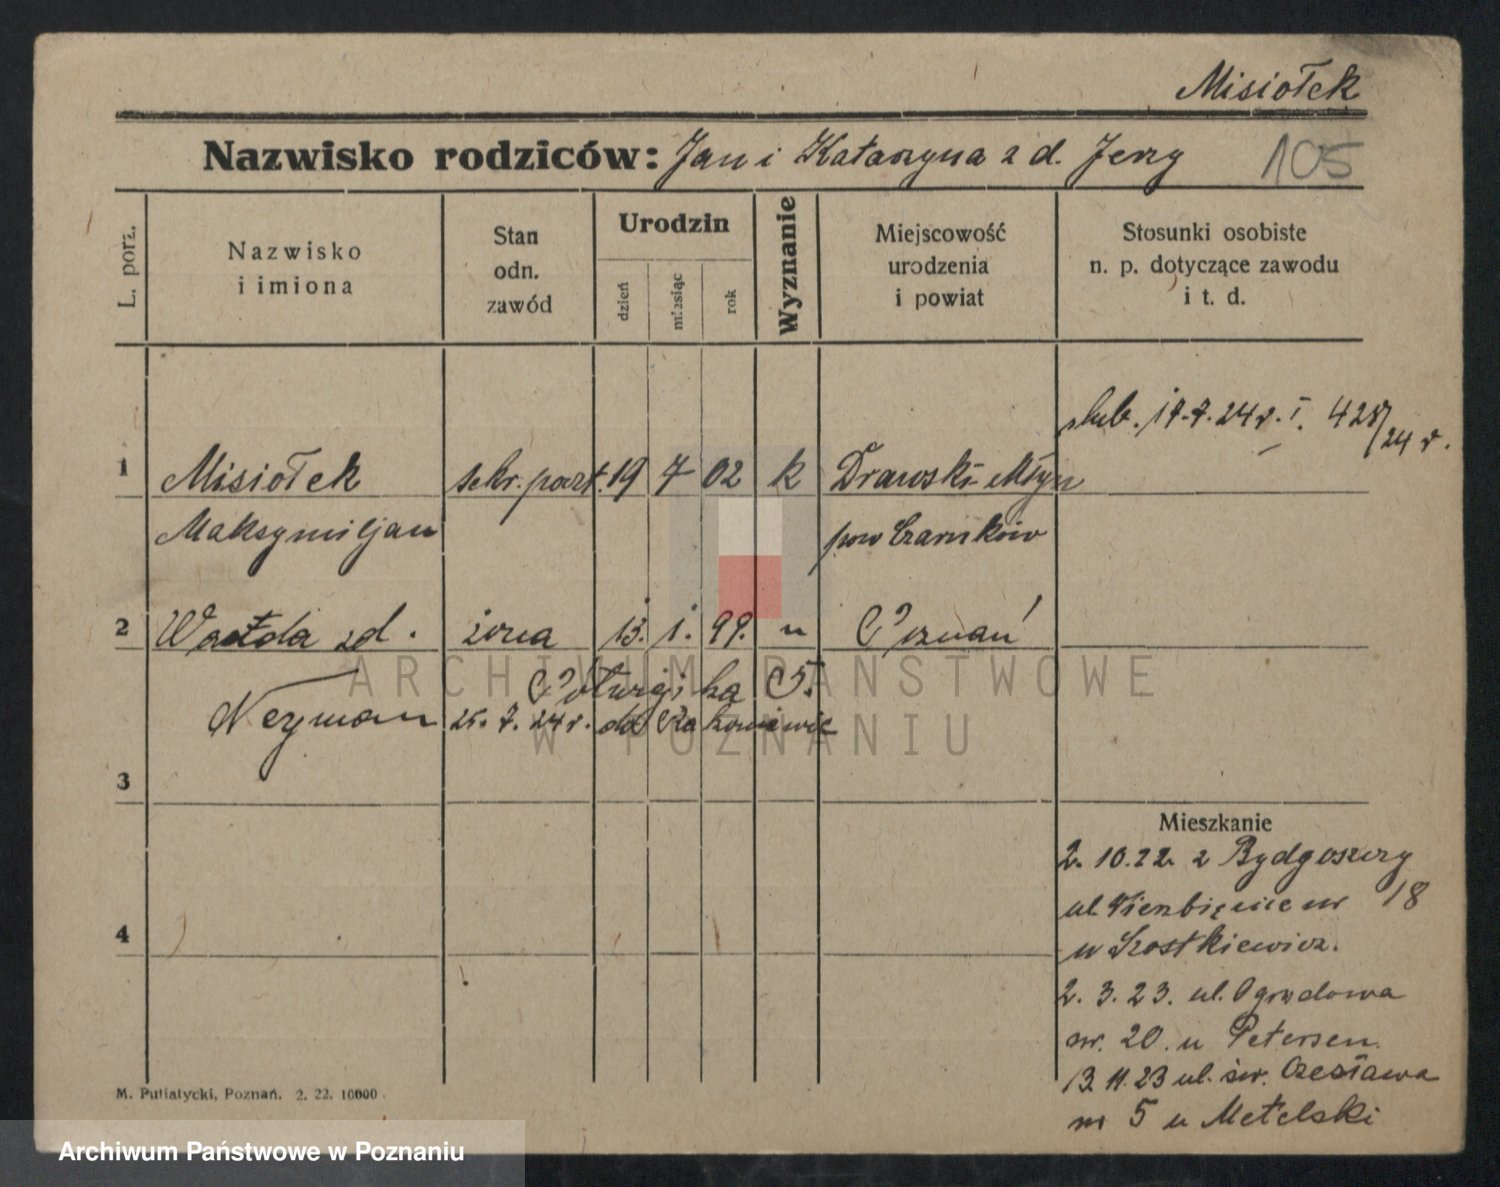 Misiołek
Nazwisko rodziców: Jan i Katarzyna z d. Jerzy
105
L. porz.
Nazwisko
i imiona
Stan
odn.
zawód
Urodzin
dzień
miesiąc
rok
Wyznanie
Miejscowość
urodzenia
i powiat
Stosunki osobiste
n. p. dotyczące zawodu
i t. d.
ślub. 17.7.24 r. I. 428/24 r.
1 Misiołek sekr. poczt. 19 7 02 k Drawski-Młyn
Maksymiljan pow Czarnków
2 Wanda zd. żona 13. 1. 99. " Poznań
Półwiejska 5.
Neyman 25. 7. 24 r. do Rakoniewic
3
Mieszkanie
2. 10.22. z Bydgoszczy
ul. Wierzbięcice nr 18
u Szostkiewicz.
4
2. 3. 23. ul. Ogrodowa
nr. 20. u Petersen.
13 11. 23 ul. św. Czesława
nr 5 u Metelski
M. Putiatycki, Poznań. 2. 22. 10000.
ARCHIWUM PAŃSTWOWE
W POZNANIU
Archiwum Państwowe w Poznaniu